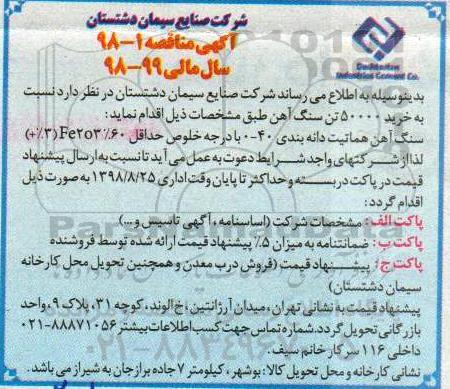 شرکت صنایع سیمان دشتستان
آگهی مناقصه ۱-۹۸
سال مالی ۹۹-۹۸
Dashtestan
Industries Cement Co.
بدینوسیله به اطلاع می رساند شرکت صنایع سیمان دشتستان در نظر دارد نسبت
به خرید ۵۰۰۰۰ تن سنگ آهن طبق مشخصات ذیل اقدام نماید:
سنگ آهن هماتیت دانه بندی ۴۰-۰ با درجه خلوص حداقل ۶۰٪ Fe2o3 (۳٪+)
لذا از شرکتهای واجد شرایط دعوت به عمل می آید تا نسبت به ارسال پیشنهاد
قیمت در پاکت دربسته و حداکثر تا پایان وقت اداری ۱۳۹۸/۸/۲۵ به صورت ذیل
اقدام گردد:
پاکت الف: مشخصات شرکت (اساسنامه، آگهی تاسیس و...)
پاکت ب: ضمانتنامه به میزان ۵٪ پیشنهاد قیمت ارائه شده توسط فروشنده
پاکت ج: پیشنهاد قیمت (فروش درب معدن و همچنین تحویل محل کارخانه
سیمان دشتستان)
پیشنهاد قیمت به نشانی تهران، میدان آرژانتین، خ الوند، کوچه ۳۱، پلاک ۹، واحد
بازرگانی تحویل گردد. شماره تماس جهت کسب اطلاعات بیشتر ۸۸۸۷۱۰۵۶-۰۲۱
داخلی ۱۱۶ سرکار خانم سیف.
نشانی کارخانه و محل تحویل کالا: بوشهر، کیلومتر ۷ جاده برازجان به شیراز می باشد.
۰۲۱-۸۸۳۴۹۶۷